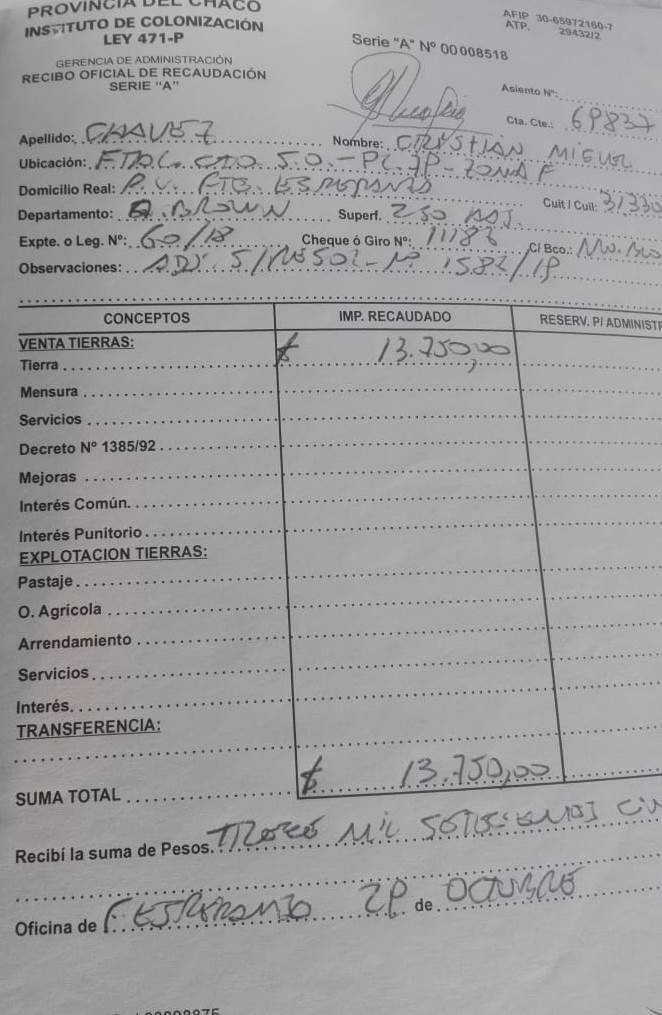 PROVINCIA DEL CHACO
INSTITUTO DE COLONIZACIÓN
LEY 471-P
GERENCIA DE ADMINISTRACIÓN
RECIBO OFICIAL DE RECAUDACIÓN
SERIE "A"
AFIP 30-65972160-7
ATP. 29432/2
Serie "A" Nº 00008518
Asiento Nº:
Cta. Cte.: 69837
Apellido: CHAVEZ Nombre: CRISTIAN MIGUEL
Ubicación: S.O. - ZONA F
Domicilio Real: P.V. FTE. ESPERANZA Cuit / Cuil: 31330
Departamento: A. BROWN Superf. 250 HAS.
Expte. o Leg. Nº: 60/18 Cheque ó Giro Nº: 11183 C/ Bco.: NVO. BCO
Observaciones: ADJ. S/RESOL - Nº 1582/19
CONCEPTOS IMP. RECAUDADO RESERV. P/ ADMINISTR
VENTA TIERRAS:
Tierra $ 13.750,00
Mensura
Servicios
Decreto Nº 1385/92
Mejoras
Interés Común.
Interés Punitorio
EXPLOTACION TIERRAS:
Pastaje
O. Agrícola
Arrendamiento
Servicios
Interés.
TRANSFERENCIA:
SUMA TOTAL $ 13.750,00
Recibí la suma de Pesos. TRECE MIL SETECIENTOS CIN
Oficina de F. ESPERANZA 29 de OCTUBRE